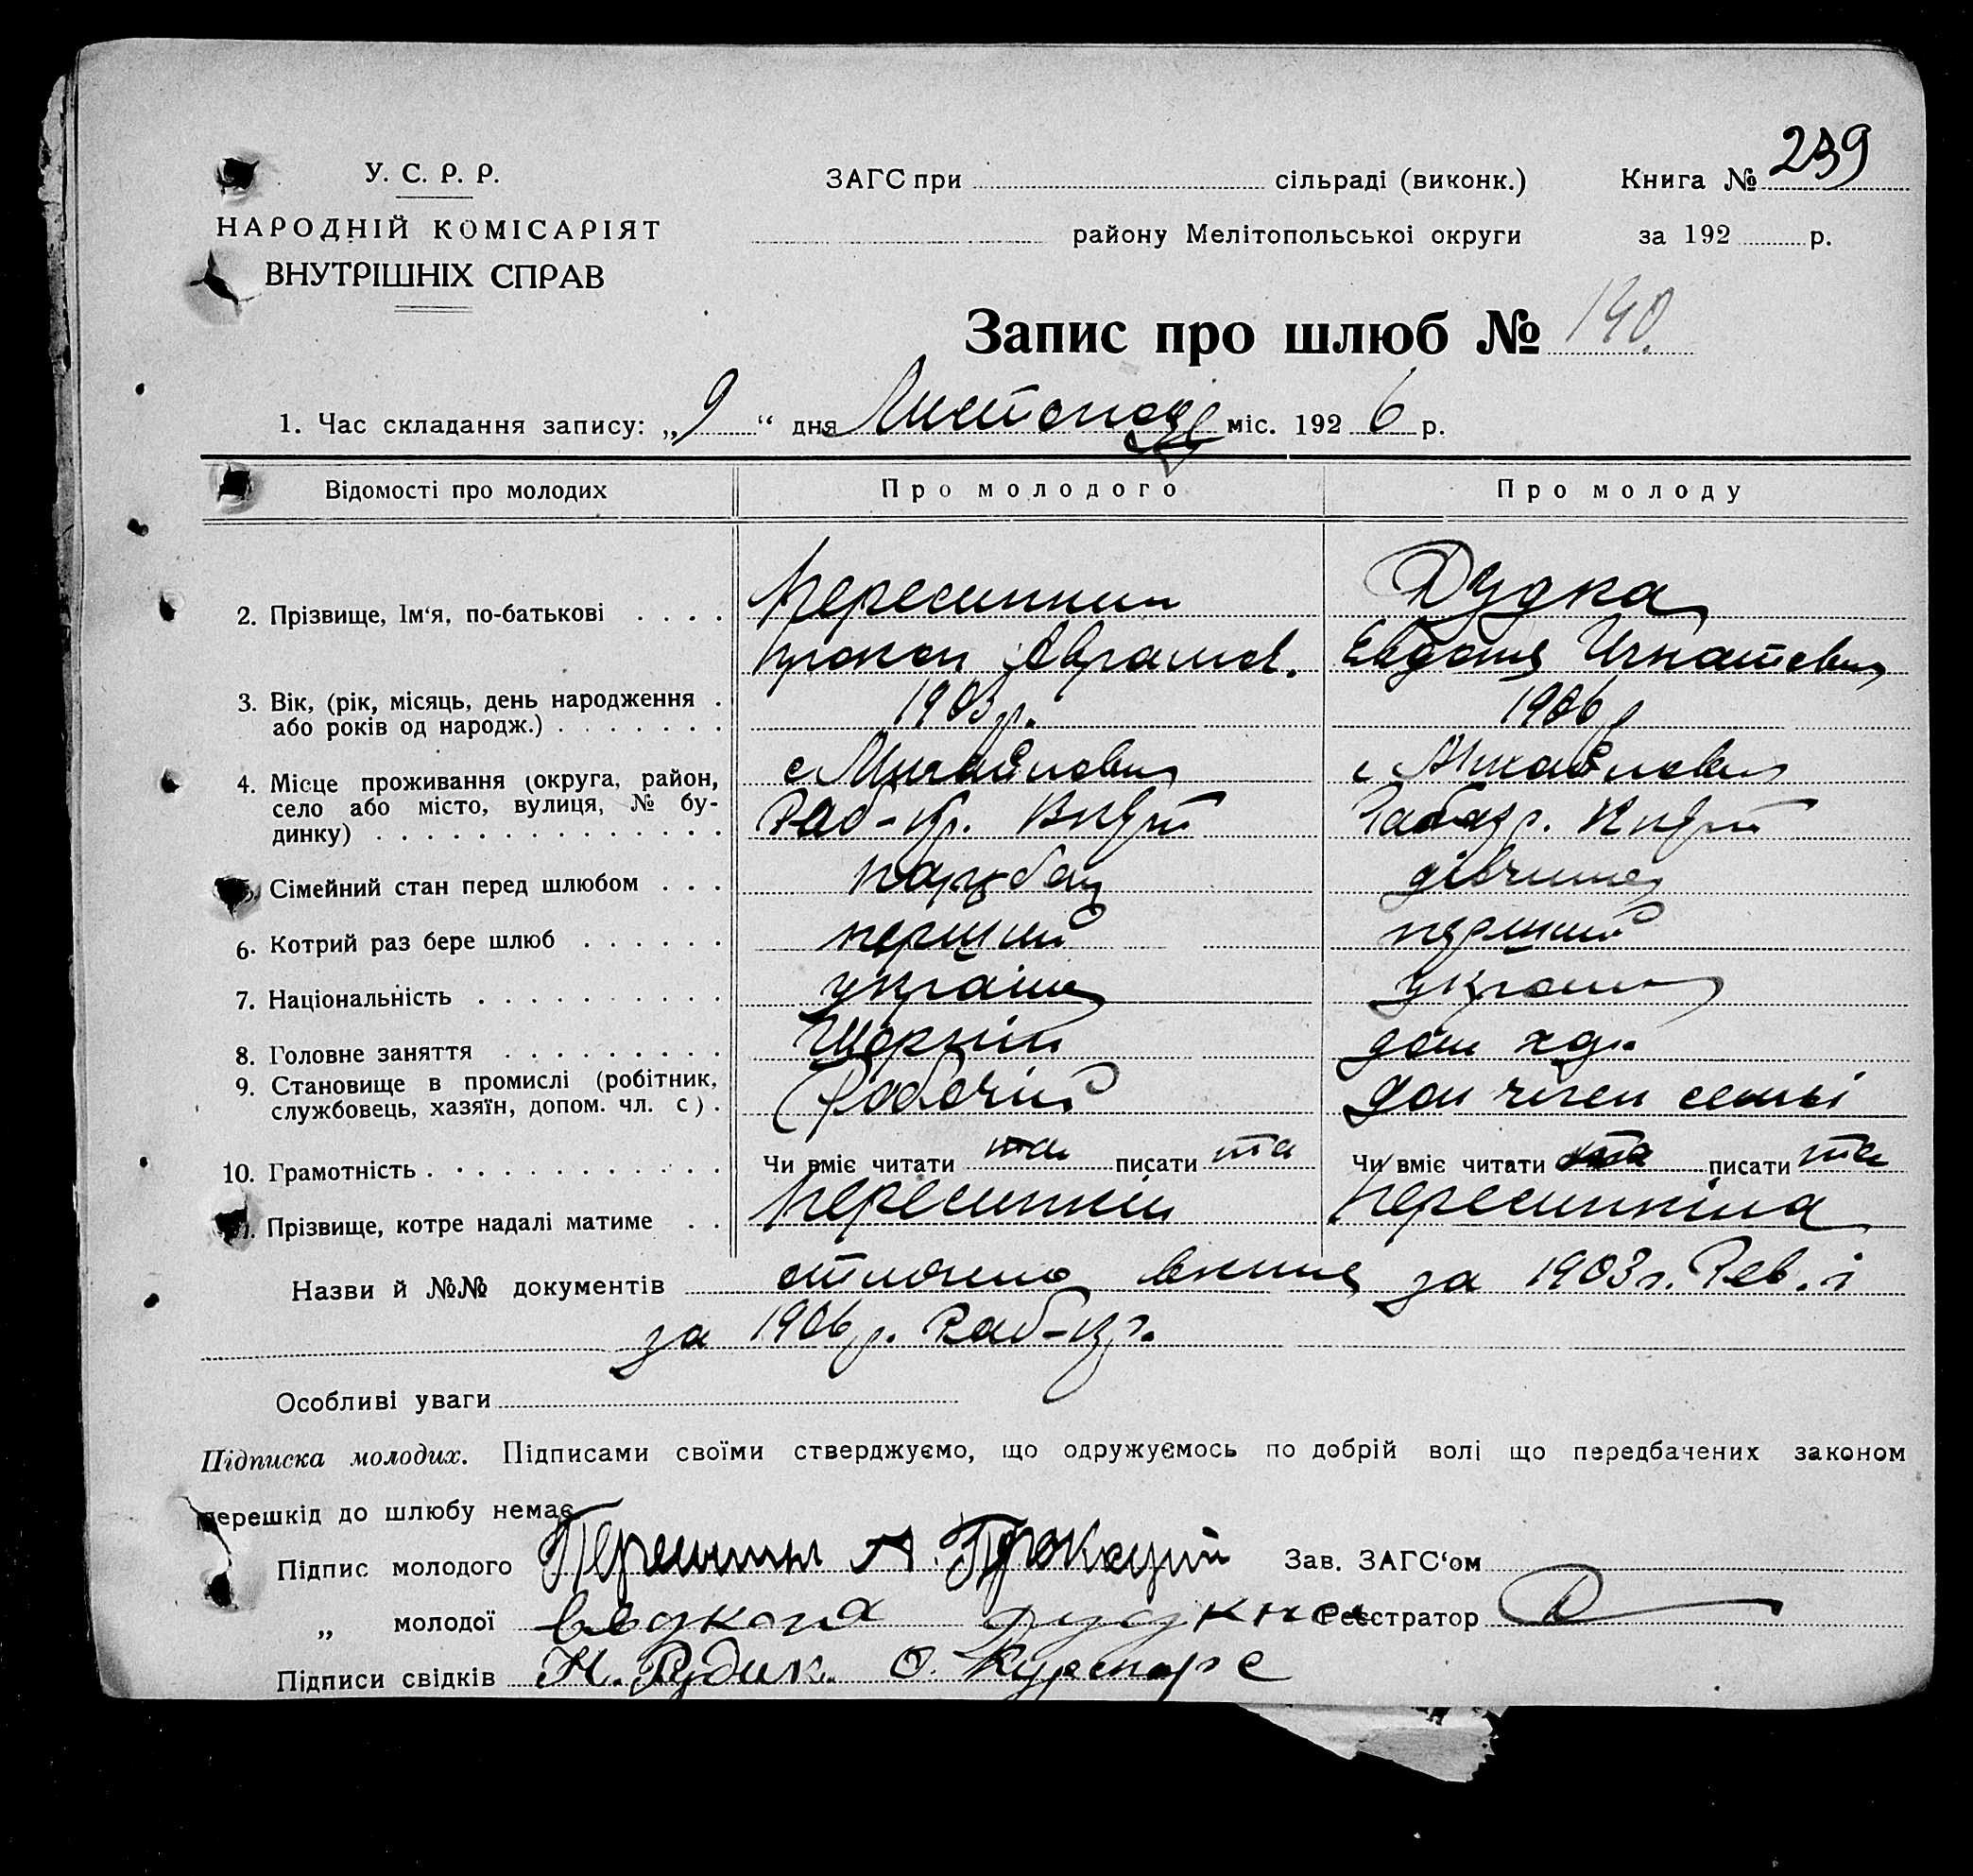 239
У. С. Р. Р.
ЗАГС при сільраді (виконк.) Книга №
НАРОДНІЙ КОМІСАРІЯТ
району Мелітопольської округи за 192 р.
ВНУТРІШНІХ СПРАВ
Запис про шлюб № 140.
1. Час складання запису: „9“ дня Листопада міс. 1926 р.
Відомості про молодих Про молодого Про молоду
Дудка
2. Прізвище, Ім‘я, по-батькові
Прокоп Аврамов. Евдокия Игнатовна
3. Вік, (рік, місяць, день народження 1903 р. 1906 р
або років од народж.)
с Михайловка с Михайловка
4. Місце проживання (округа, район,
село або місто, вулиця, № бу-
динку)
5. Сімейний стан перед шлюбом парубок дівчина
6. Котрий раз бере шлюб перший перший
7. Національність
8. Головне заняття дом хаз.
9. Становище в промислі (робітник, Робочій Доп член семьі
службовець, хазяїн, допом. чл. с)
10. Грамотність Чи вміє читати та писати та Чи вміє читати та писати та
11. Прізвище, котре надалі матиме Пересипкін Пересипкіна
Назви й №№ документів за 1903 р. Рев. і
за 1906 р. Раб-кр.
Особливі уваги
Підписка молодих. Підписами своїми стверджуємо, що одружуємось по добрій волі що передбачених законом
перешкід до шлюбу немає
Підпис молодого Зав. ЗАГС‘ом
„ молодої Реєстратор
Підписи свідків Н. Рудик. О.